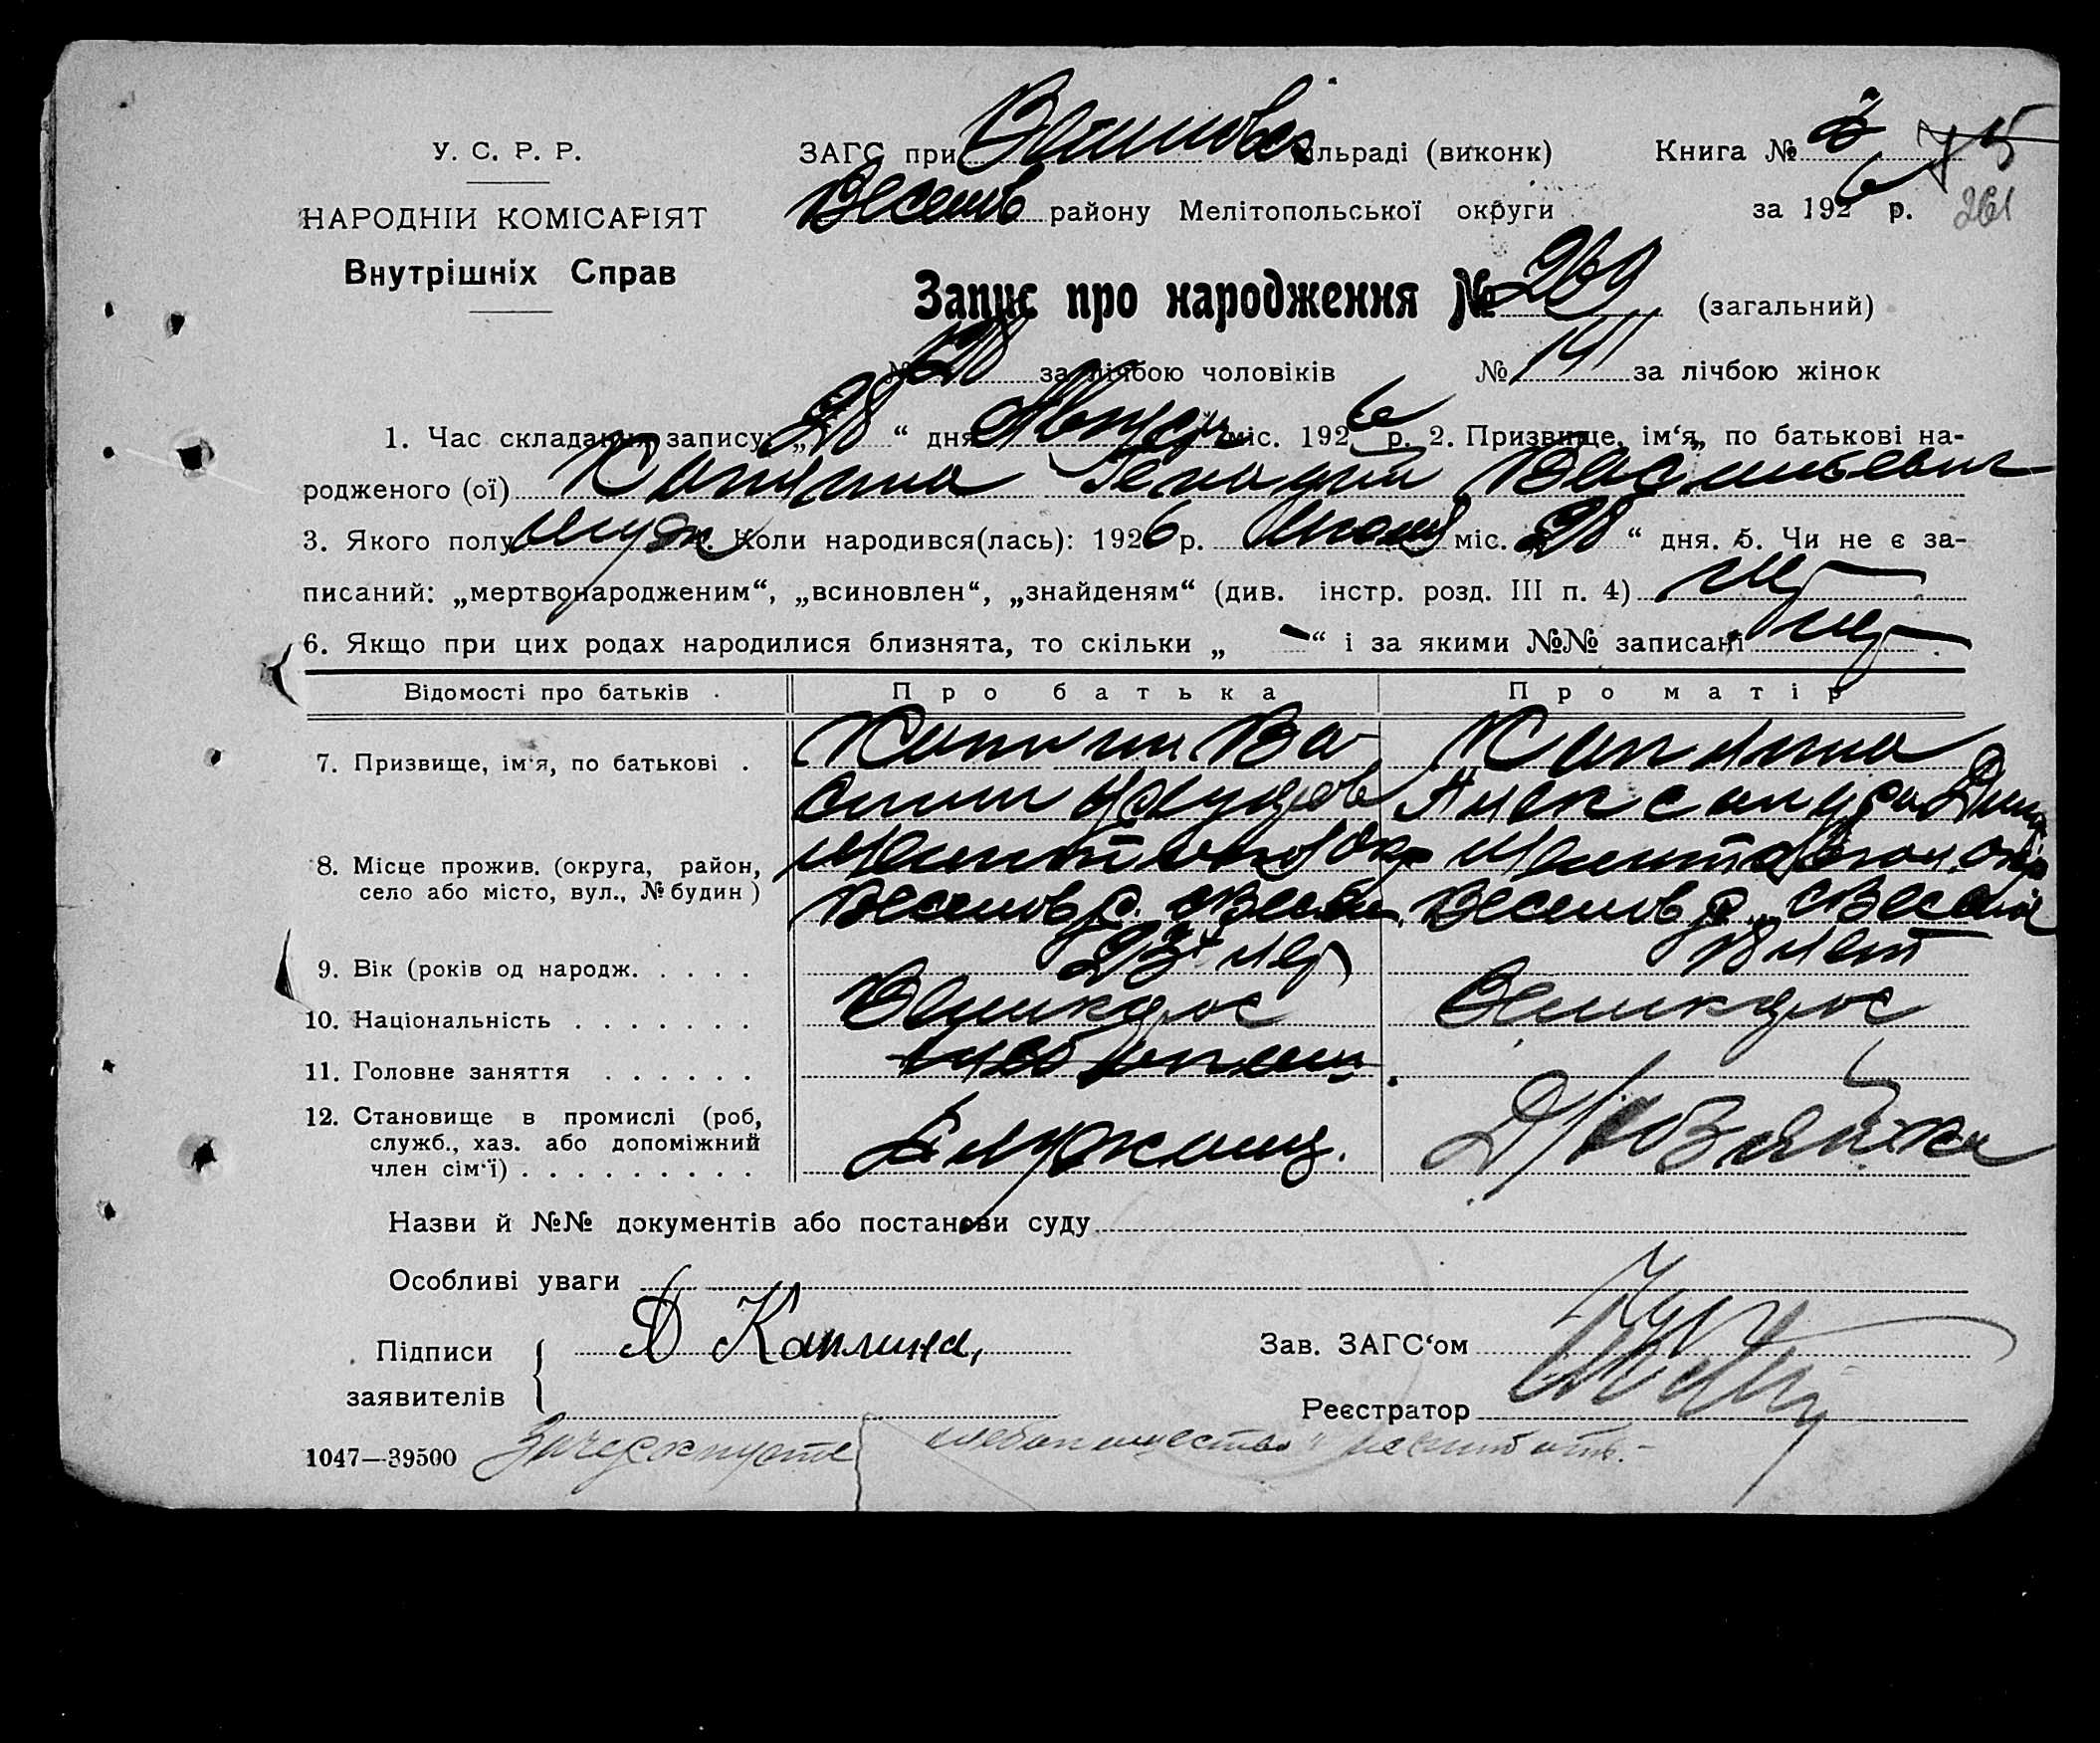 У. С. Р. Р.
НАРОДНІЙ КОМІСАРІЯТ
Внутрішніх Справ
ЗАГС при сільраді (виконк)
Веселов району Мелітопольської округи
Книга № 75
за 1926 р. 261
Запис про народження № 269 (загальний)
№ за лічбою чоловіків № 141 за лічбою жінок
1. Час складання запису: „28“ дня міс. 1926 р. 2. Призвище, ім‘я, по батькові на-
родженого (ої) Каплина Генадий Васильевич
3. Якого полу муж. 4. Коли народився(лась): 1926 р. міс. 28 “ дня. 5. Чи не є за-
писаний: „мертвонародженим“, „всиновлен“, „знайденям“ (див. інстр. розд. III п. 4) нет
6. Якщо при цих родах народилися близнята, то скільки „ — “ і за якими №№ записані нет
Відомості про батьків Про батька Про матір
7. Призвище, ім‘я, по батькові Каплин Ва- Каплина
силий Александра
8. Місце прожив. (округа, район, село або місто, вул., № будин) Мелитопол окр Мелитопол окр
Веселов р. с Веселов р. с Весел
9. Вік (років од народж. 23 лет лет
10. Національність Великорос Великорос
11. Головне заняття
12. Становище в промислі (роб, служб., хаз. або допоміжний член сім‘ї) Служащ. Д/хозяйка
Назви й №№ документів або постанови суду
Особливі уваги
Підписи заявителів Каплина,
Зав. ЗАГС‘ом
Реєстратор
1047—39500 Зачеркнутое хлебопашество не считать.-